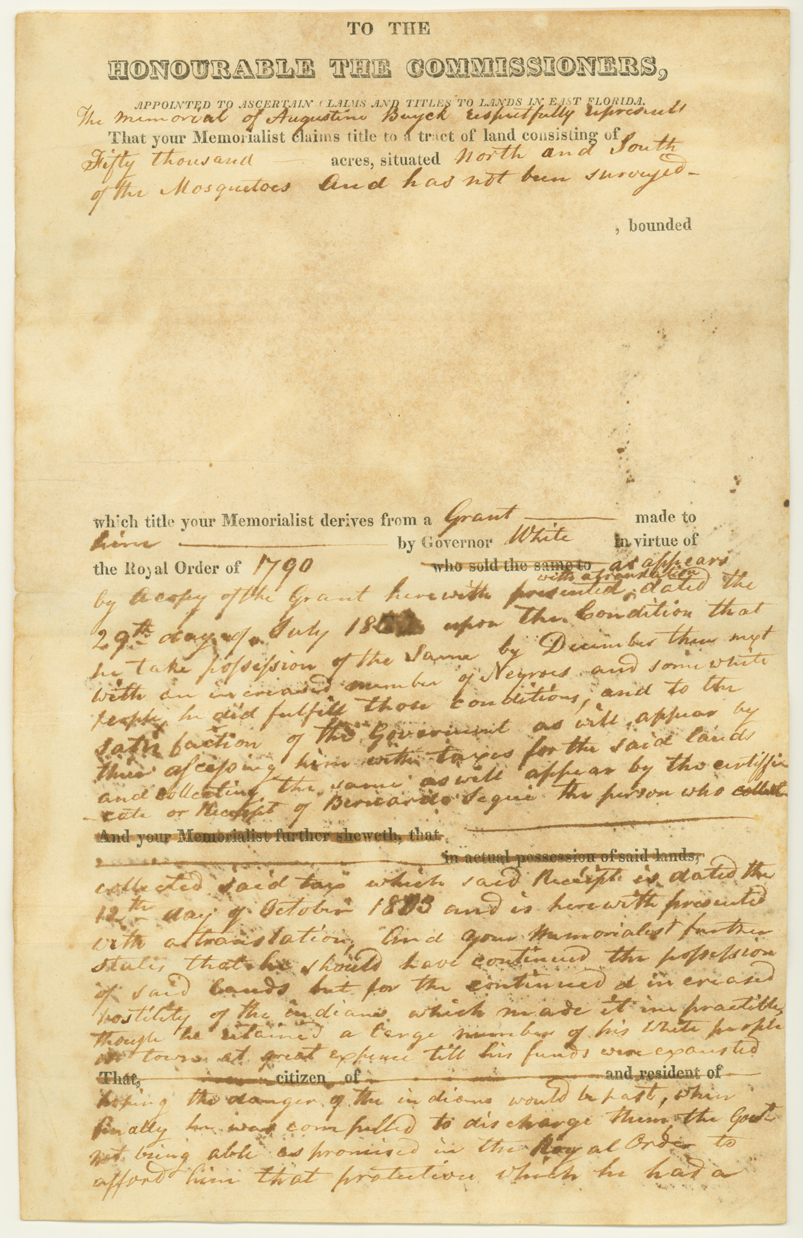 TO THE
HONOURABLE THE COMMISSIONERS,
APPOINTED TO ASCERTAIN CLAIMS AND TITLES TO LANDS IN EAST FLORIDA.
The memorial of Augustine Buyck respectfully represents
That your Memorialist claims title to a tract of land consisting of
Fifty thousand acres, situated North and South
of the Mosquetoes And has not been surveyed
, bounded
which title your Memorialist derives from a Grant made to
him by Governor White in virtue of
the Royal Order of 1790 who sold the same to as appears
with a translation
by a copy of the Grant herewith presented, dated the
29th day of July 18 upon the Condition that
he take possession of the Same by December then next
with an increased number of Negroes and some white
people, he did fulfill those conditions, and to the
satisfaction of the Government as will appear by
their assessing him with taxes for the said lands
and collecting the same as will appear by the certifi
cate or Receipt of Bernardo Segui the person who
And your Memorialist further sheweth, that
in actual possession of said lands,
collected said tax which said Receipt is dated the
12th day of October 1803 and is herewith presented
with a translation, And your Memorialist further
states that he should have continued the possession
of said lands but for the continued & increased
hostility of the indians which made it impractible,
though he retained a large number of his White people
in town at great expence till his funds were exausted
That, citizen of and resident of
hoping the danger of the indians would be past, when
finally he was compelled to discharge them the Govt
not being able as promised in the Royal Order to
afford him that protection which he had a